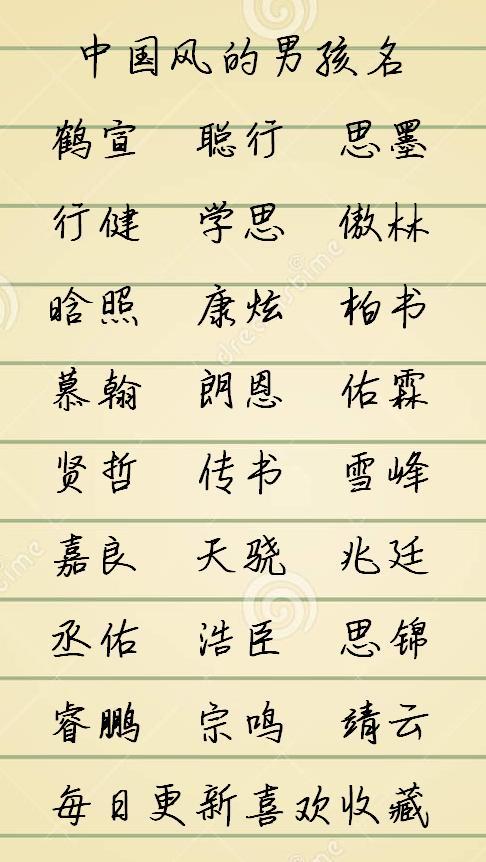 中国风的男孩名
鹤宣 聪行 思墨
行健 学思 傲林
晗照 康炫 柏书
慕翰 朗恩 佑霖
贤哲 传书 雪峰
嘉良 天骁 兆廷
丞佑 浩臣 思锦
睿鹏 宗鸣 靖云
每日更新喜欢收藏